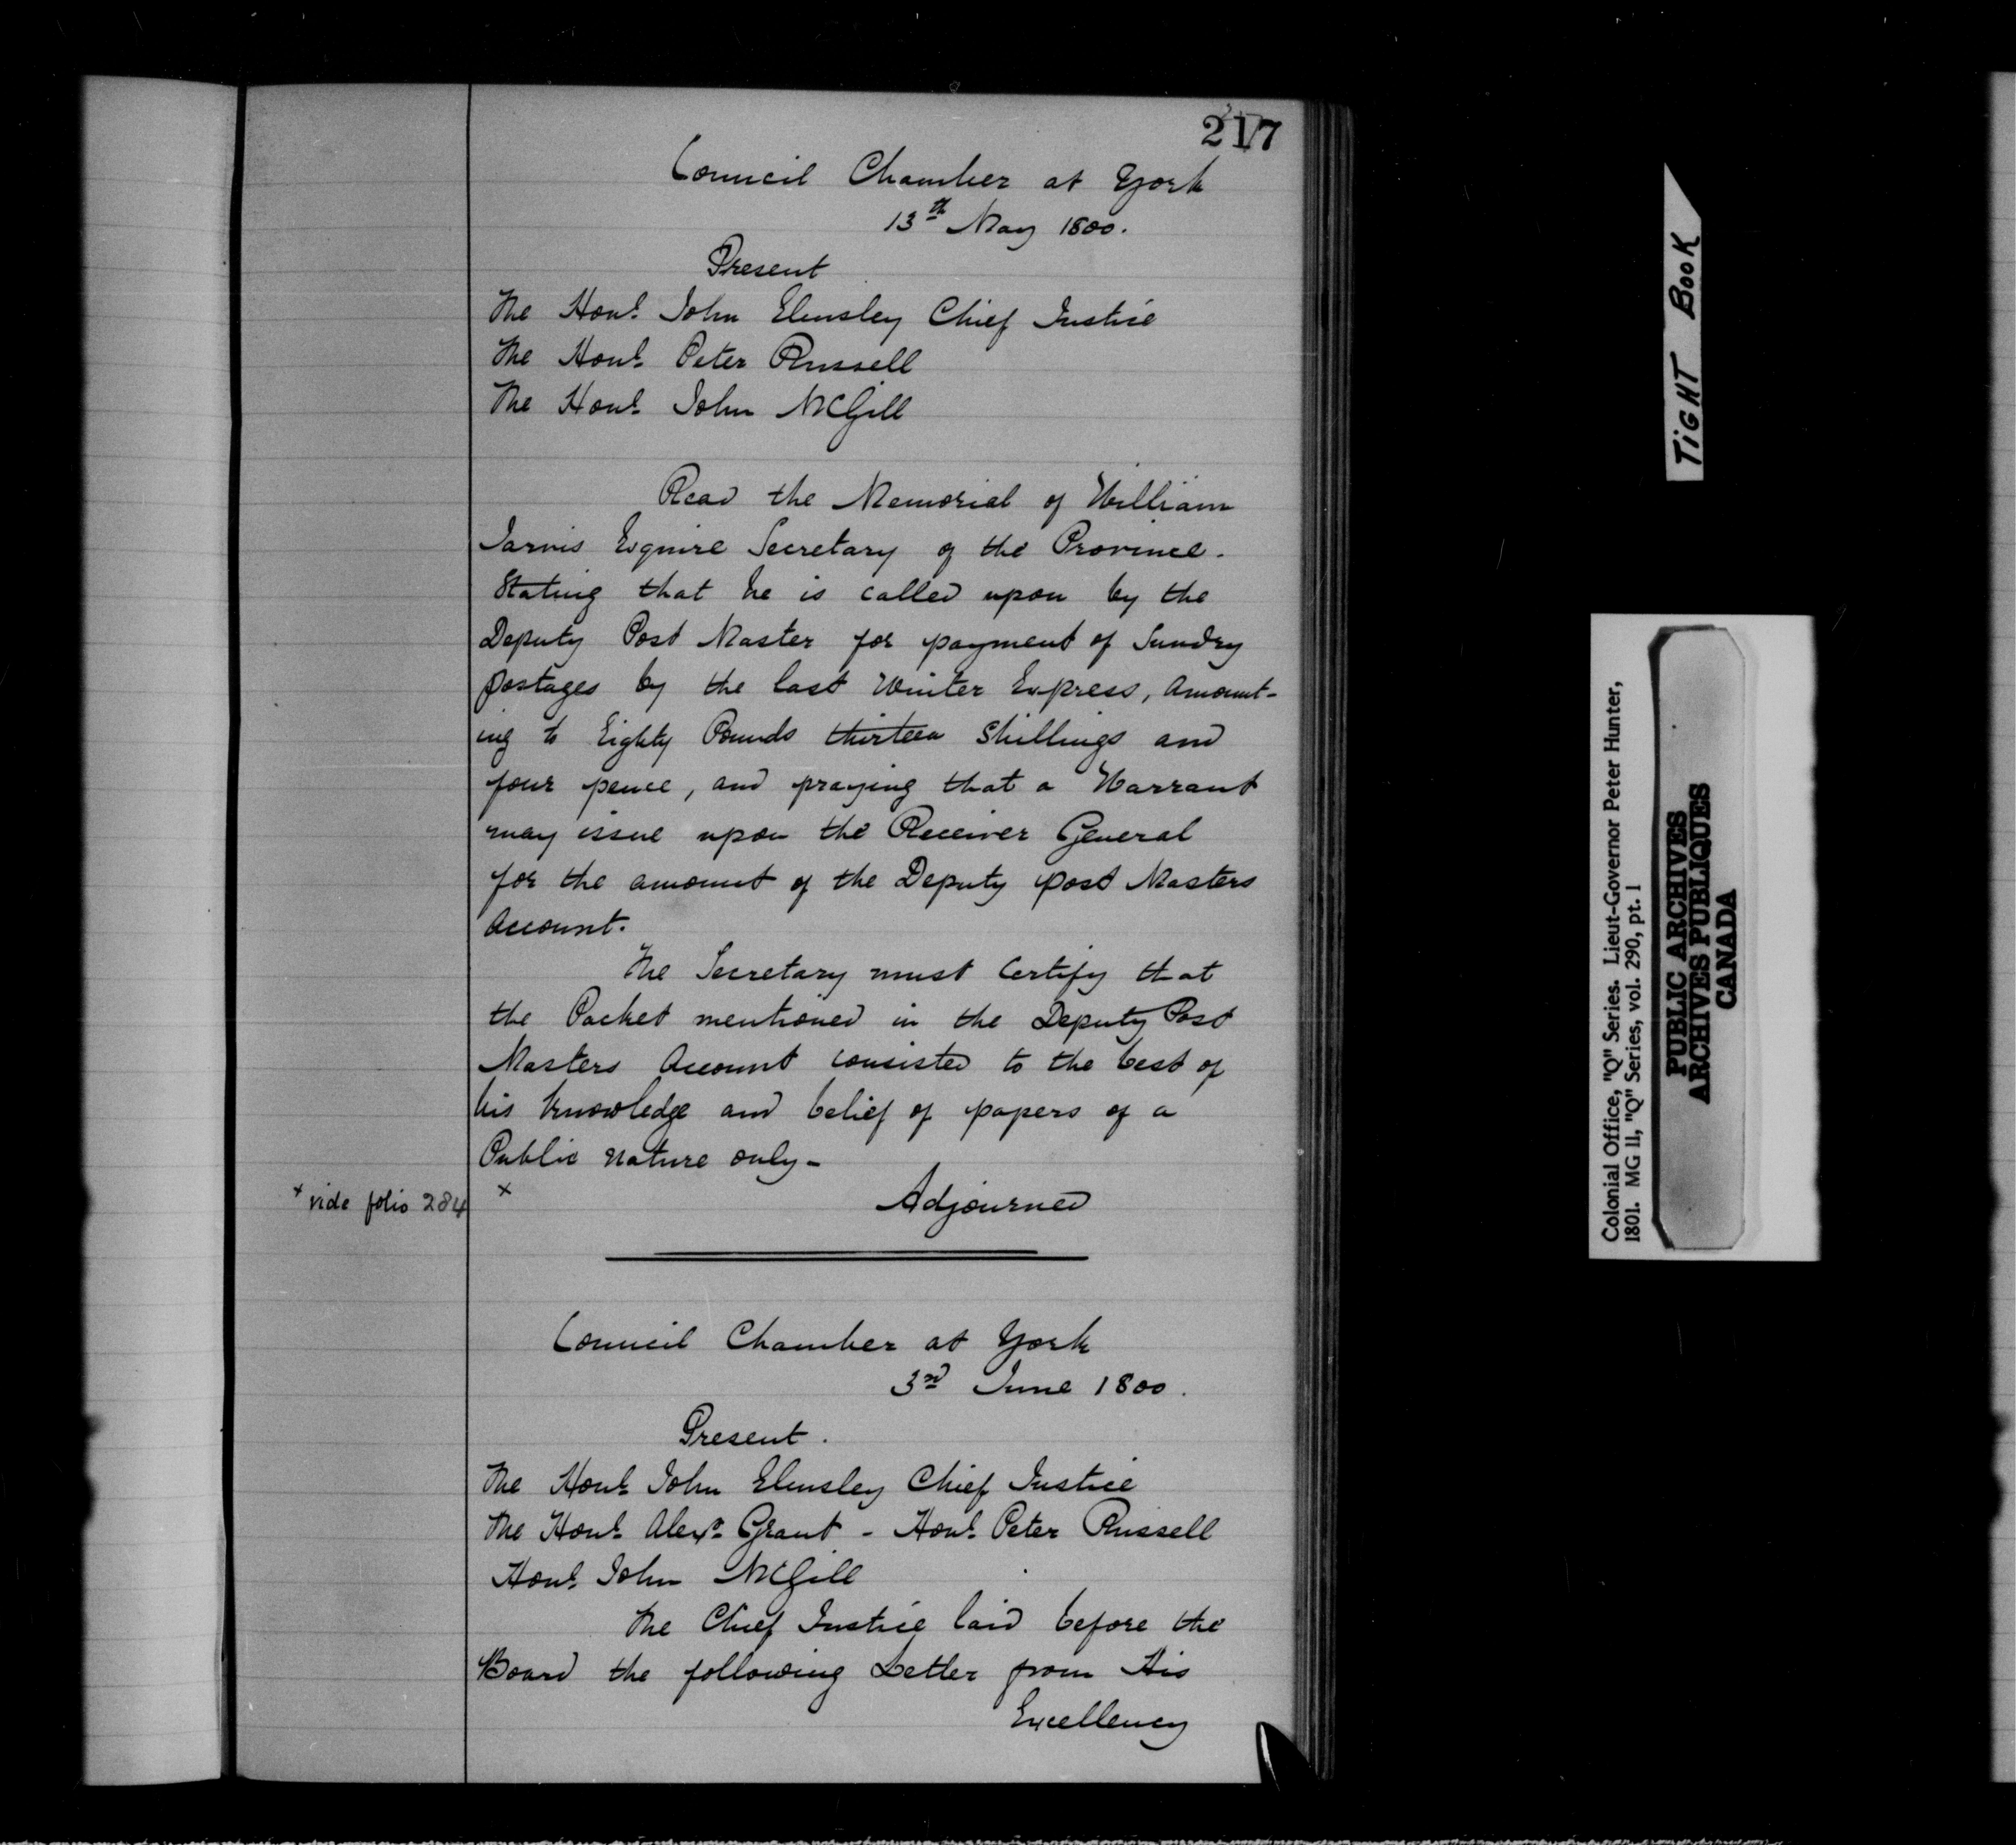 217
Council Chamber at York
13th May 1800.
Present
The Honl. John Elmsley Chief Justice
The Honl. Peter Russell
The Honl. John McGill
Read the Memorial of William
Jarvis Esquire Secretary of the Province.
Stating that he is called upon by the
Deputy Post Master for payment of Sundry
postages by the last Winter Express, Amount-
ing to Eighty Pounds thirteen Shillings and
four pence, and praying that a Warrant
may issue upon the Receiver General
for the amount of the Deputy post Masters
Account.
The Secretary must Certify that
the Packet mentioned in the Deputy Post
Masters Account consisted to the best of
his knowledge and belief of papers of a
Public nature only-
x vide folio 284
x Adjourned
Council Chamber at York
3rd June 1800.
Present.
The Honl. John Elmsley Chief Justice
The Honl. Alexr. Grant - Honl. Peter Russell
Honl. John McGill
The Chief Justice laid before the
Board the following Letter from His
Excellency
TIGHT BOOK
Colonial Office, "Q" Series. Lieut-Governor Peter Hunter,
1801. MG 11, "Q" Series, vol. 290, pt. 1
PUBLIC ARCHIVES
ARCHIVES PUBLIQUES
CANADA